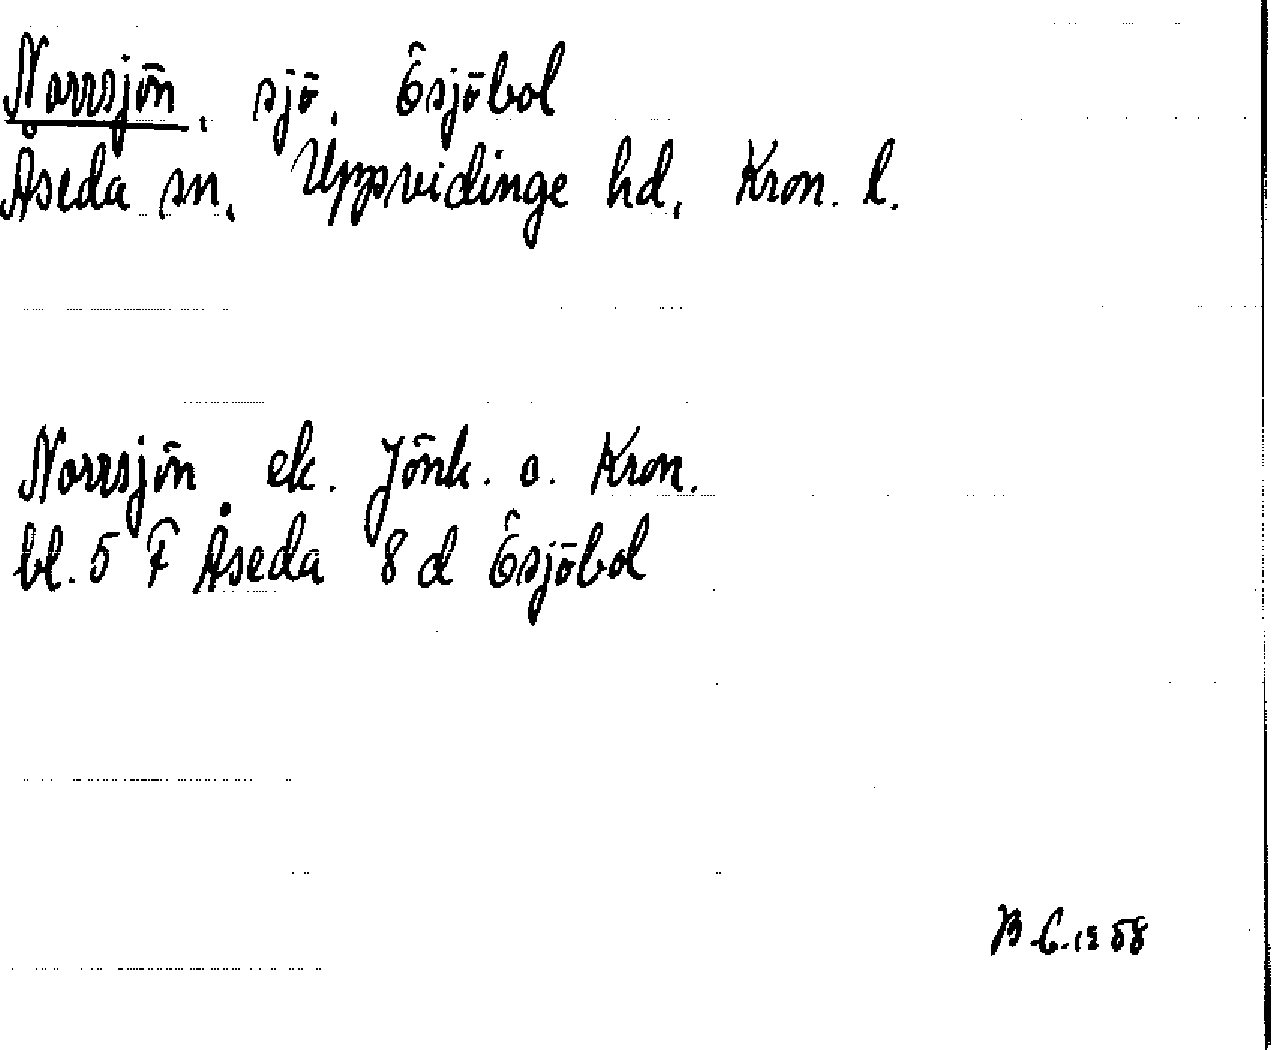 Norrsjön, sjö. Ösjöbol
Åseda sn, Uppvidinge hd, Kron. l.
Norrsjön ek. Jönk. o. Kron.
bl. 5 F Åseda 8 d Ösjöbol